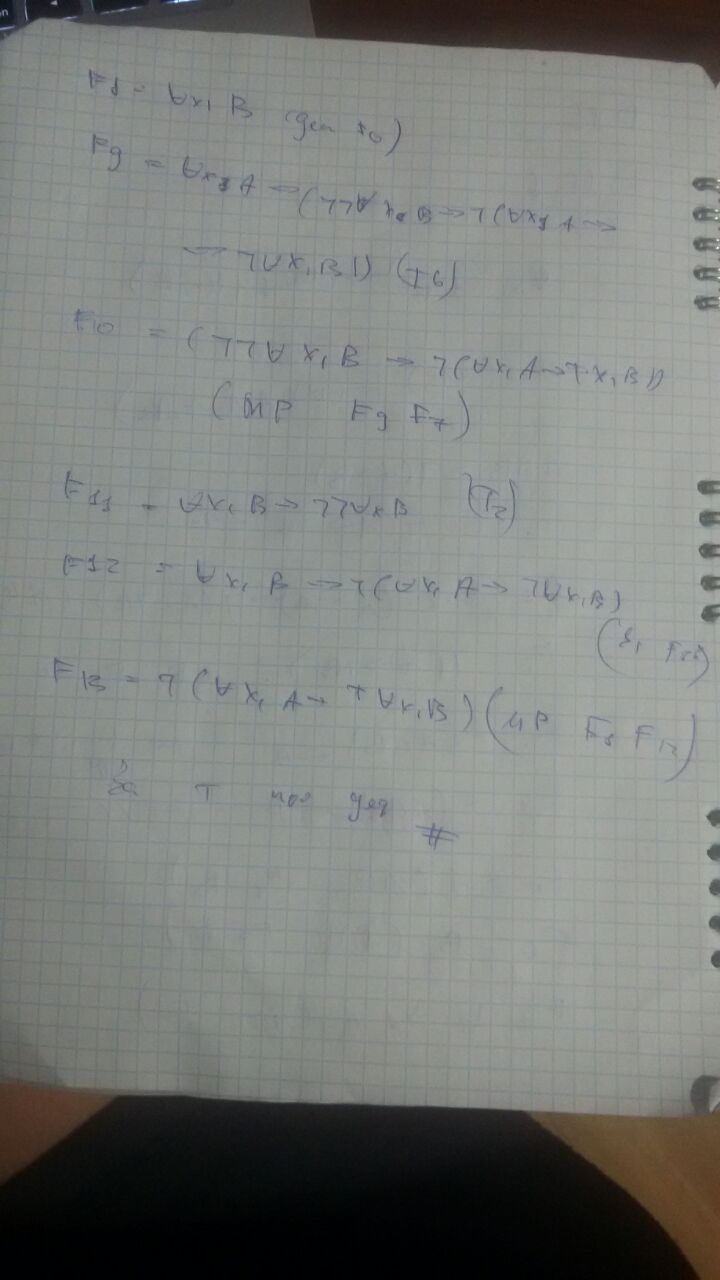 F8 = ∀x₁ B (ген F6)
F9 = ∀x₁A → (⅂⅂∀x₁B → ⅂(∀x₁A →
→ ⅂∀x₁B)) (T6)
F10 = (⅂⅂∀x₁B → ⅂(∀x₁A → ⅂∀x₁B))
(МP F9 F7)
F11 = ∀x₁B → ⅂⅂∀x₁B (T2)
F12 = ∀x₁B → ⅂(∀x₁A → ⅂∀x₁B)
F13 = ⅂(∀x₁A → ⅂∀x₁B) (МP F8 F12)
T дед #